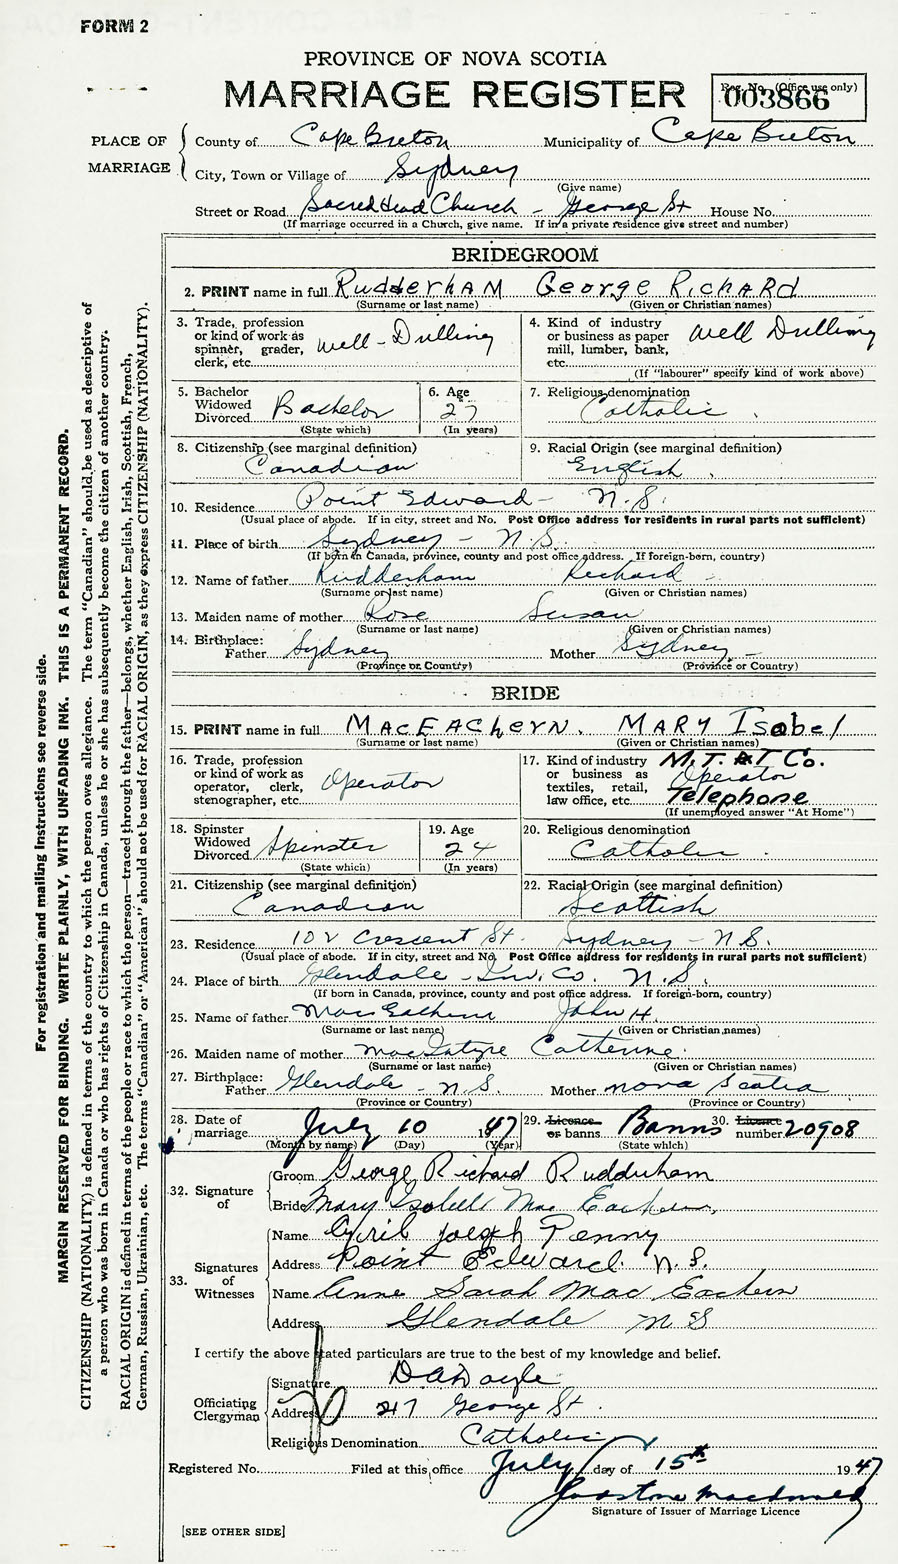 FORM 2
PROVINCE OF NOVA SCOTIA
MARRIAGE REGISTER
Reg. No. (Office use only)
003866
PLACE OF MARRIAGE
County of Cape Breton Municipality of Cape Breton
City, Town or Village of Sydney
(Give name)
Street or Road Sacred Head Church - George St House No.
(If marriage occurred in a Church, give name. If in a private residence give street and number)
BRIDEGROOM
2. PRINT name in full Rudderham George Richard
(Surname or last name) (Given or Christian names)
3. Trade, profession or kind of work as spinner, grader, clerk, etc. well-Drilling
4. Kind of industry or business as paper mill, lumber, bank, etc. well Drilling
(If "labourer" specify kind of work above)
5. Bachelor Widowed Divorced Bachelor
(State which)
6. Age 27
(In years)
7. Religious denomination Catholic
8. Citizenship (see marginal definition)
Canadian
9. Racial Origin (see marginal definition)
English
10. Residence Point Edward - N.S.
(Usual place of abode. If in city, street and No. Post Office address for residents in rural parts not sufficient)
11. Place of birth Sydney - N.S.
(If born in Canada, province, county and post office address. If foreign-born, country)
12. Name of father Rudderham Richard
(Surname or last name) (Given or Christian names)
13. Maiden name of mother Rose Susan
(Surname or last name) (Given or Christian names)
14. Birthplace:
Father Sydney Mother Sydney
(Province or Country) (Province or Country)
BRIDE
15. PRINT name in full MacEachern. Mary Isabel
(Surname or last name) (Given or Christian names)
16. Trade, profession or kind of work as operator, clerk, stenographer, etc. Operator
17. Kind of industry or business as textiles, retail, law office, etc. M.T. & T Co. Operator Telephone
(If unemployed answer "At Home")
18. Spinster Widowed Divorced Spinster
(State which)
19. Age 24
(In years)
20. Religious denomination
Catholic
21. Citizenship (see marginal definition)
Canadian
22. Racial Origin (see marginal definition)
Scottish
23. Residence 102 Crescent St. Sydney - N.S.
(Usual place of abode. If in city, street and No. Post Office address for residents in rural parts not sufficient)
24. Place of birth Glendale - Inv. Co. N.S.
(If born in Canada, province, county and post office address. If foreign-born, country)
25. Name of father MacEachern John H.
(Surname or last name) (Given or Christian names)
26. Maiden name of mother MacIntyre Catherine
(Surname or last name) (Given or Christian names)
27. Birthplace:
Father Glendale - N.S. Mother Nova Scotia
(Province or Country) (Province or Country)
28. Date of marriage July 10 1947
(Month by name) (Day) (Year)
29. Licence or banns Banns
(State which)
30. Licence number 20908
32. Signature of
Groom George Richard Rudderham
Bride Mary Isobell Mac Eachern
33. Signatures of Witnesses
Name Cyril Joseph Penny
Address Point Edward. N.S.
Name Anne Sarah Mac Eachern
Address Glendale N S
I certify the above stated particulars are true to the best of my knowledge and belief.
Officiating Clergyman
Signature D A Doyle
Address 217 George St.
Religious Denomination Catholic
Registered No. Filed at this office July day of 15th 1947
Macdonald
Signature of Issuer of Marriage Licence
[SEE OTHER SIDE]
For registration and mailing instructions see reverse side.
MARGIN RESERVED FOR BINDING. WRITE PLAINLY, WITH UNFADING INK. THIS IS A PERMANENT RECORD.
CITIZENSHIP (NATIONALITY) is defined in terms of the country to which the person owes allegiance. The term "Canadian" should be used as descriptive of
a person who was born in Canada or who has rights of Citizenship in Canada, unless he or she has subsequently become the citizen of another country.
RACIAL ORIGIN is defined in terms of the people or race to which the person—traced through the father—belongs, whether English, Irish, Scottish, French,
German, Russian, Ukrainian, etc. The terms "Canadian" or "American" should not be used for RACIAL ORIGIN, as they express CITIZENSHIP (NATIONALITY).